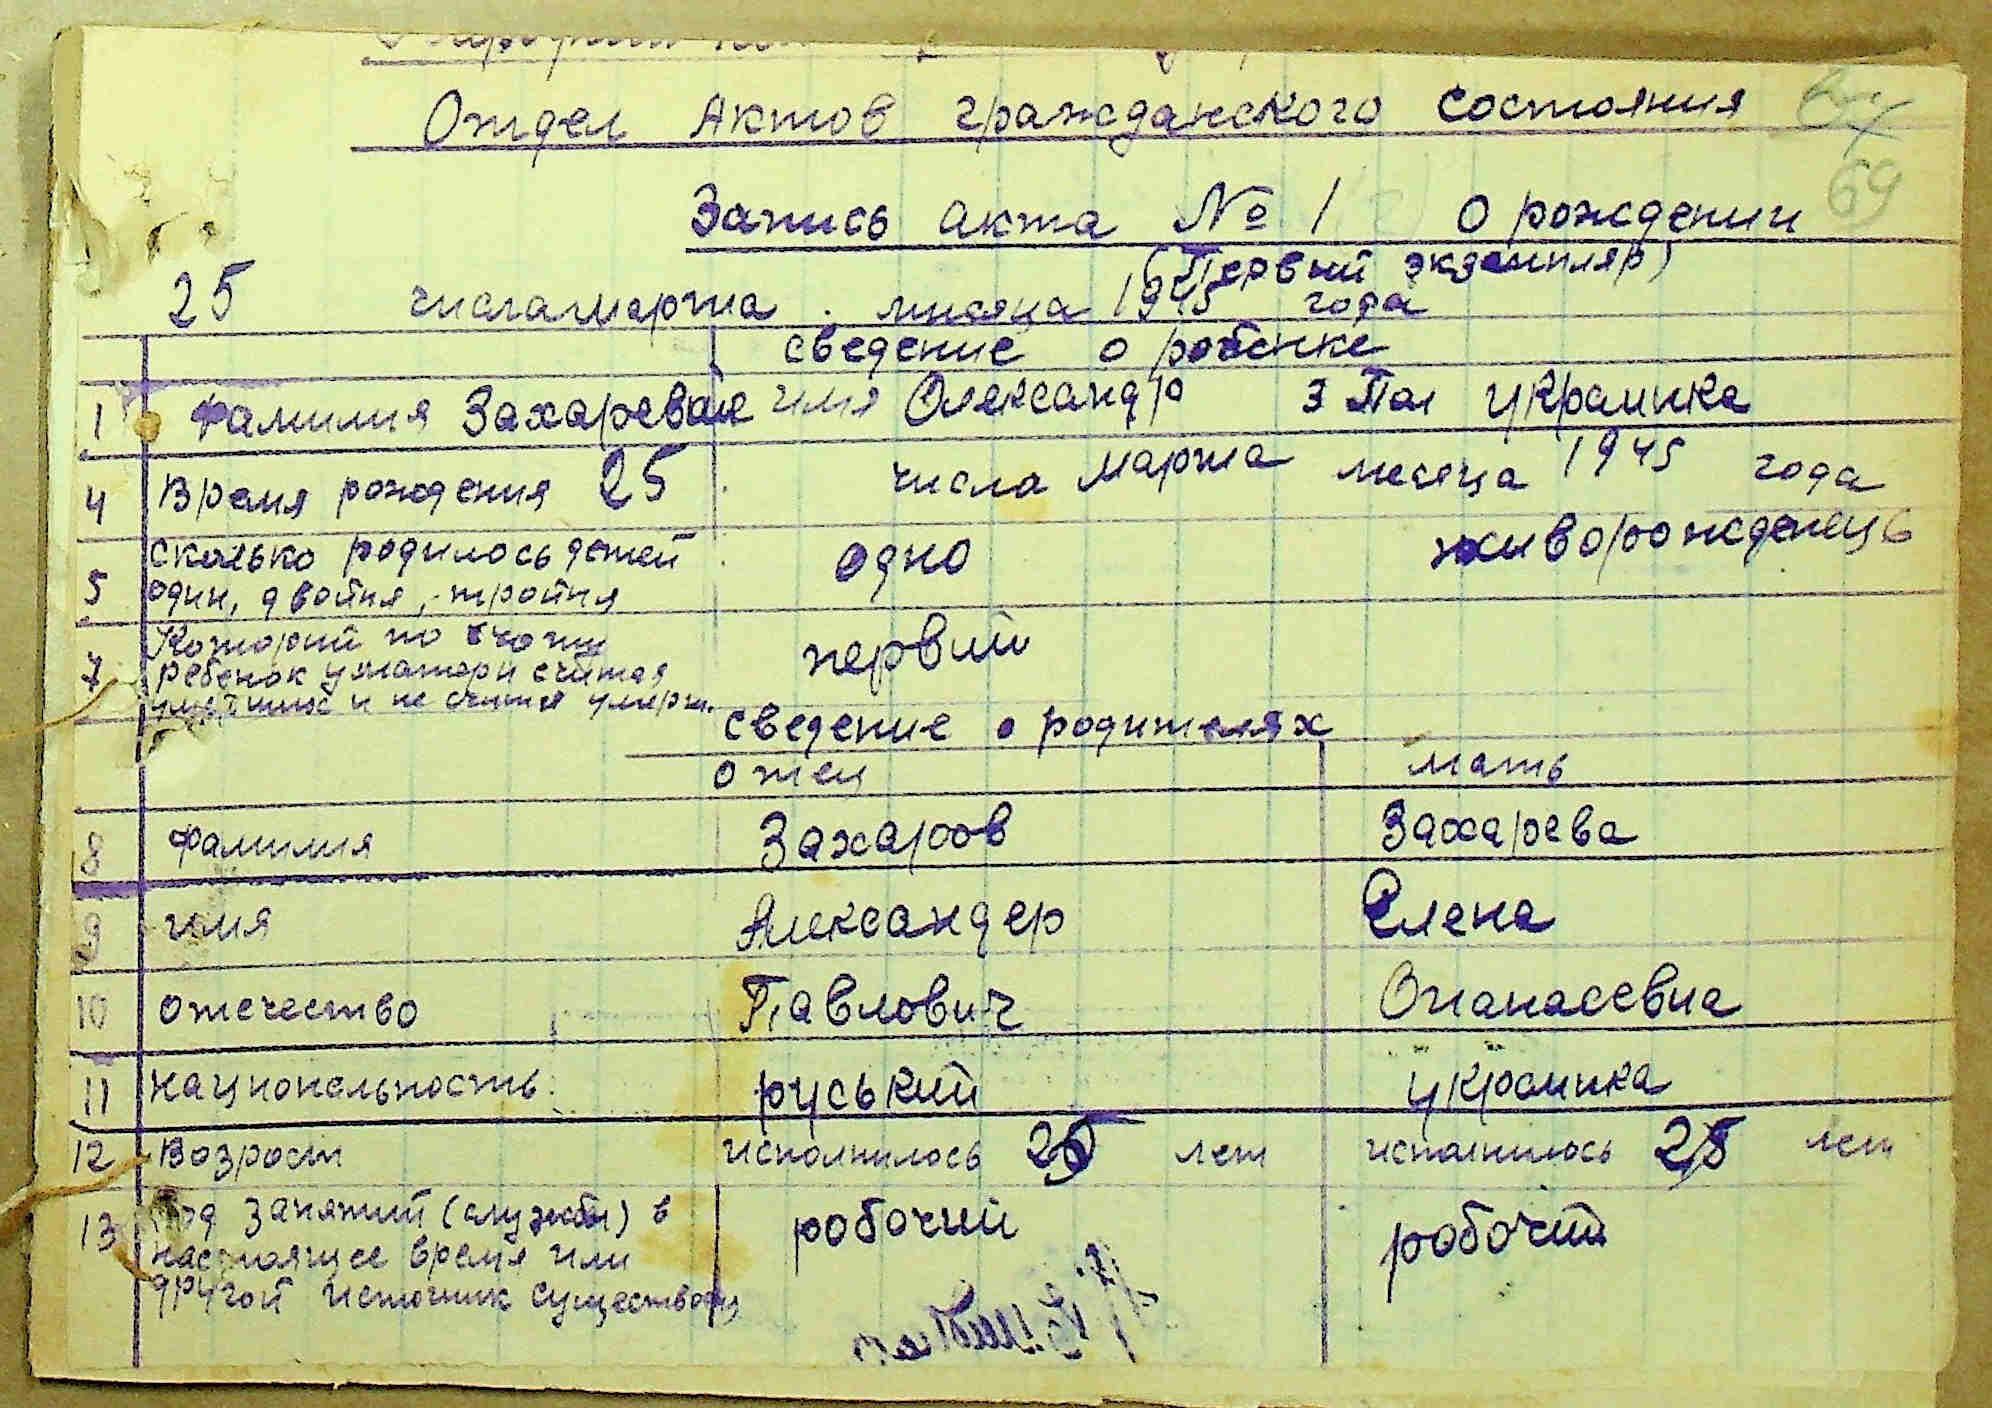 Отдел Актов гражданского состояния
69
Запись акта № 1 о рождении
(Первий экземпляр)
25 числа марта месяца 1945 года
сведение о ребенке
1 фамилия Захарева имя Олександр 3 Пол украинка
4 Время рождения 25 числа марта месяца 1945 года
5 сколько родилось детей один, двойня, тройня одно живорожденец
7 Которий по счоту ребенок у матери считая умерших и не считая первий
сведение о родителях
отец мать
8 фамилия Захаров Захарева
9 имя Александер Елена
10 отечество Павлович Опанасевна
11 национальность руський украинка
12 Возраст исполнилось лет исполнилось лет
13 Род занятий (службы) в робочий робочий
настоящее время или
другой источник существован